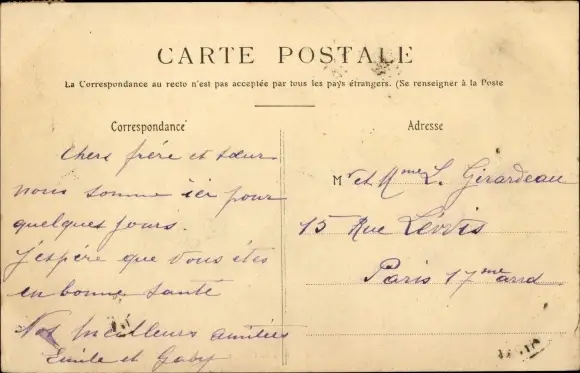 CARTE POSTALE
La Correspondance au recto n'est pas acceptée par tous les pays étrangers. (Se renseigner à la Poste
Correspondance
Chers frére et sœur
nous somme ici pour
quelques jours.
J'espére que vous étes
en bonne santé
Nos meilleurs amitiés
Emile et Gaby
Adresse
Mr et Mme L. Girardeau
15 Rue Lévis
Paris 17me arrd